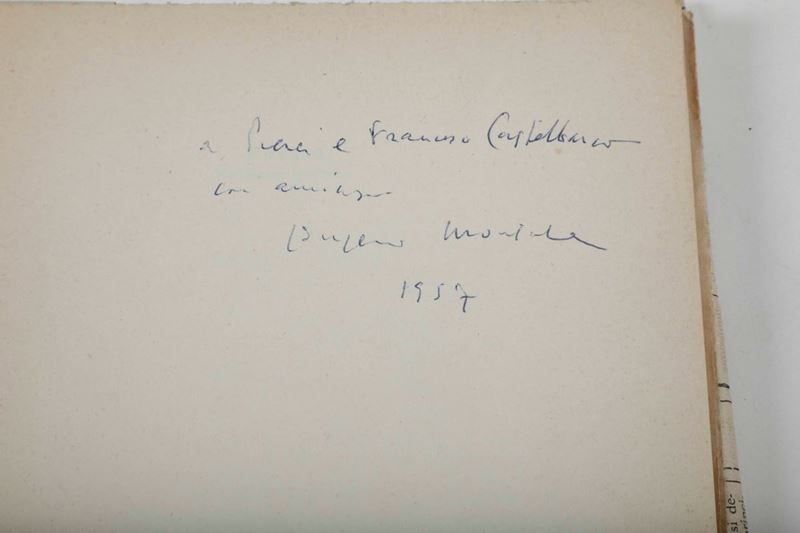 a Piera e Francesco Castelbarco
con amicizia
Eugenio Montale
1957
si de-